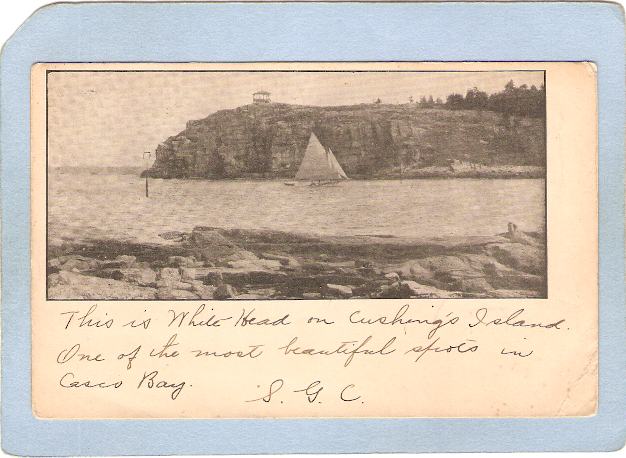 This is White Head on Cushing's Island.
One of the most beautiful spots in
Casco Bay.
S. G. C.